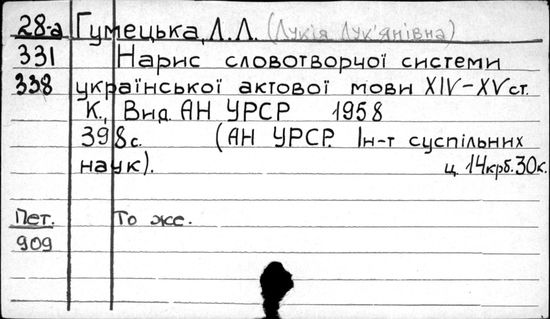 28-а Гумецька, Л.Л. (Лукія Лук'янівна)
331 Нарис словотворчої системи
338 української актової мови XIV-XV ст.
К., Вид. АН УРСР 1958
398 с. (АН УРСР. Ін-т суспільних
наук). ц. 14 крб. 30 к.
Пет. То же.
909